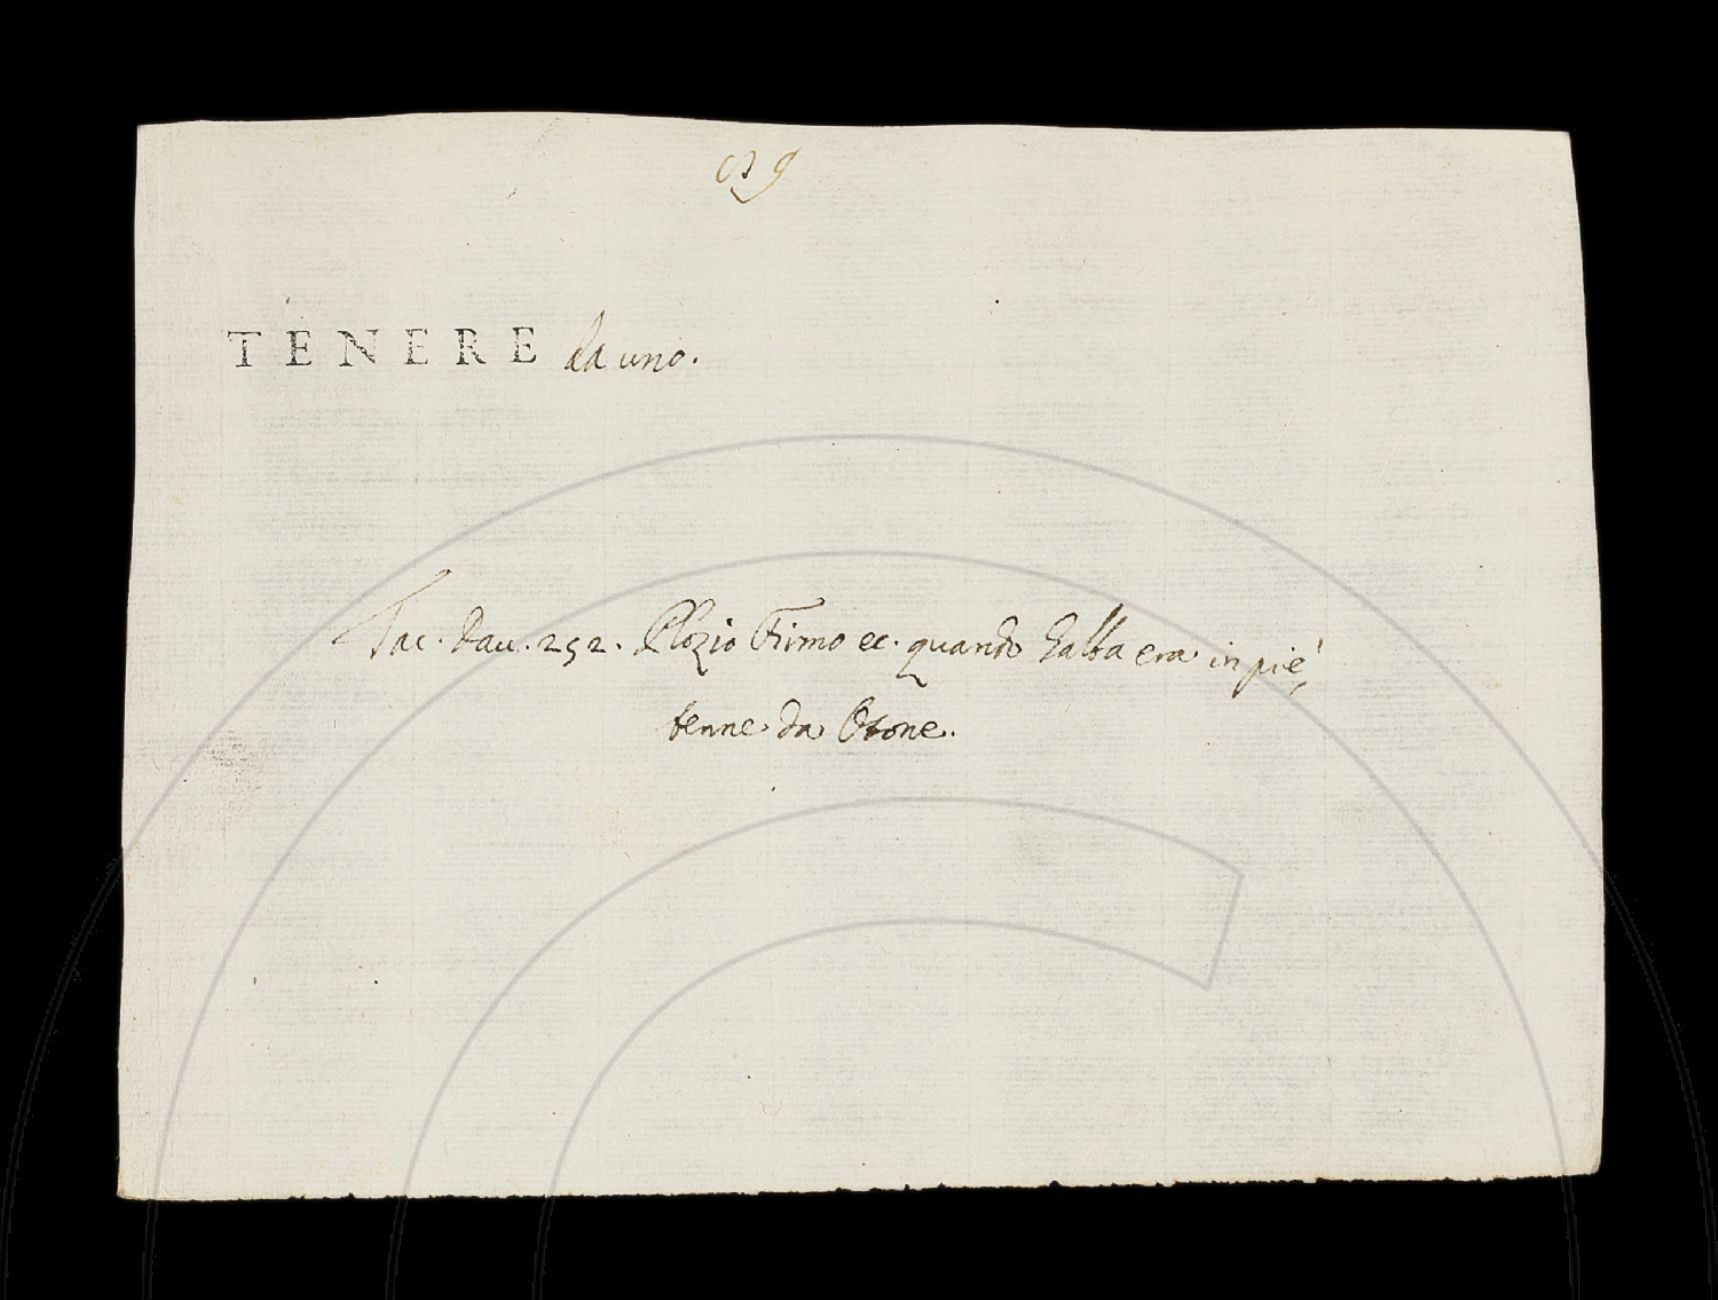 TENERE da uno.
Tac. Dav. 292. Plozio Firmo ec. quando Galba era in piè,
tenne da Otone.